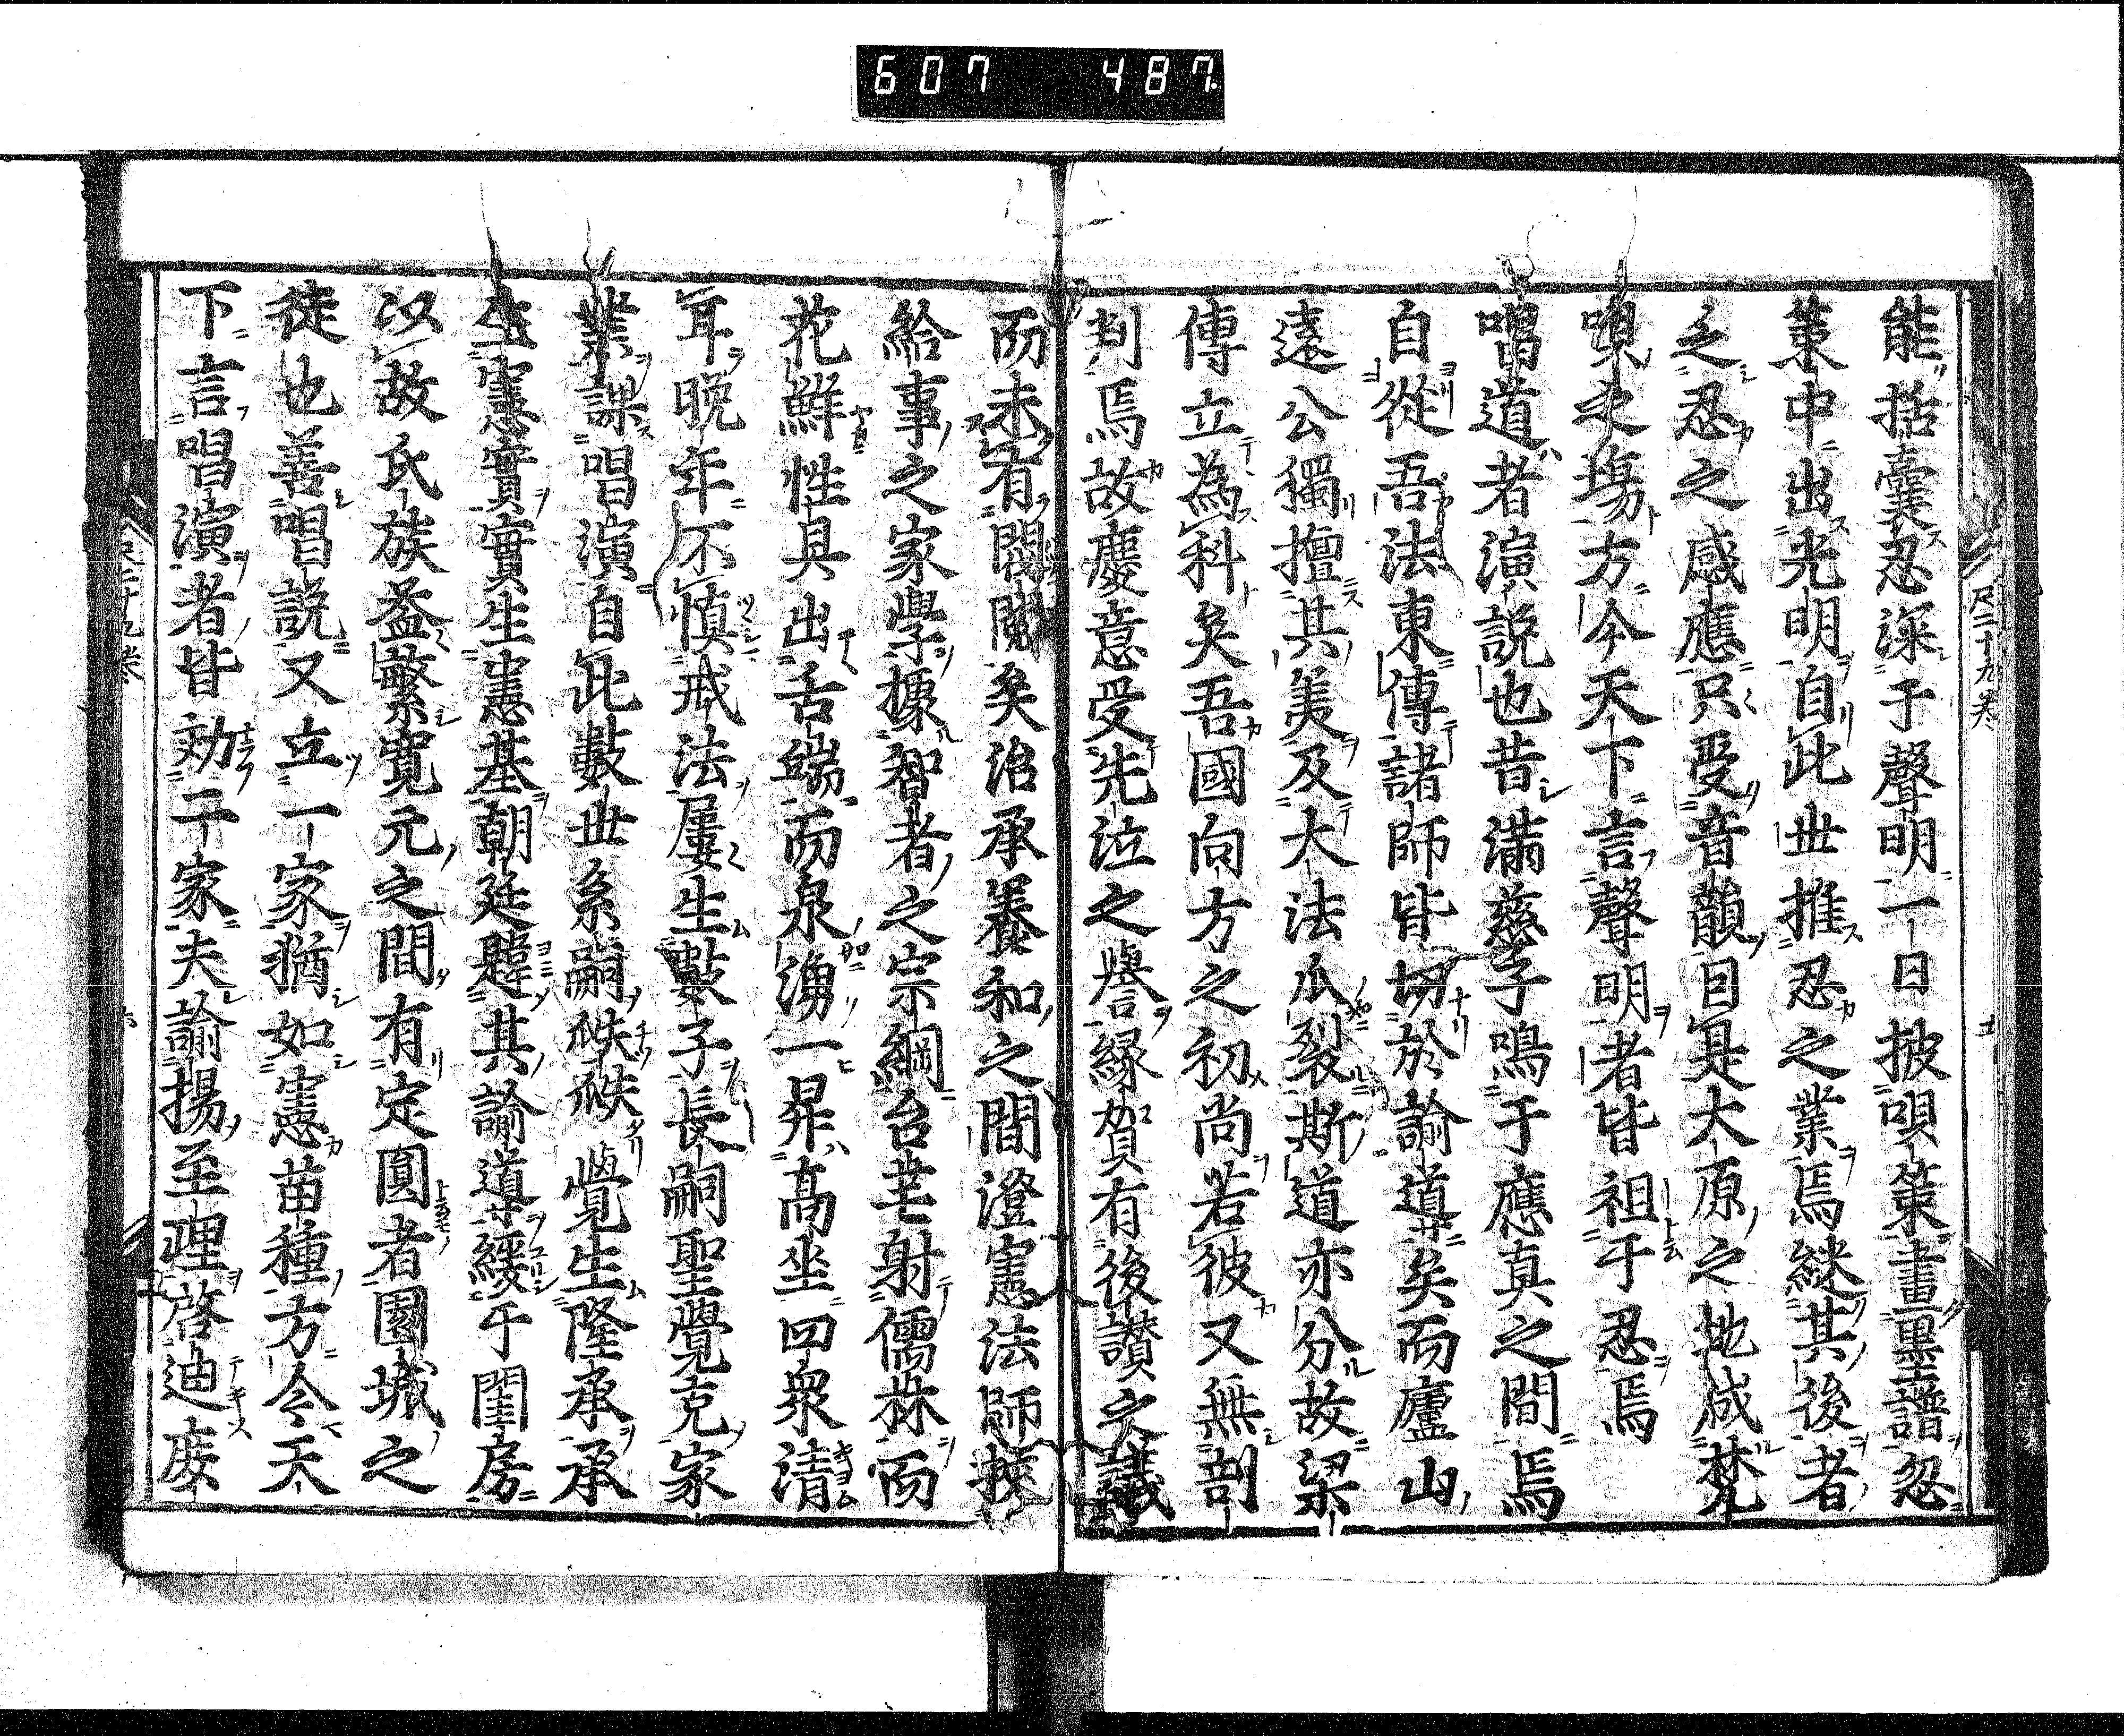 607 487
能括囊忍深于聲明一日披唄策畫墨譜忽
策中出光明自此世推忍之業焉緂其後者
之忍之感應只受音韻目眞大原之地成梵
唄之場方今天下言聲明者皆祖于忍焉
唱道者演說也昔滿慈子鳴于應真之間焉
自從吾法東傳諸師皆切於諭導矣而廬山
遠公獨擅其美及大法瓜裂斯道亦分故梁
傳立為科矣吾國向方之初尚若彼又無剖
判焉故慶意受先泣之譽緣賀有後讚之議
而未有閥閱矣治承養和之間澄憲法師挾
給事之家學據智者之宗綱台芒射儒林而
花鮮性具出舌端而泉湧一昇高坐四衆清
耳晚年不慎戒法屢生數子長嗣聖覺克家
業課唱演自此數世系嗣秩秩覺生隆承承
生憲實實生憲基朝廷韙其諭導緩于閨房
以故氏族益繁寛元之間有定圓者園城之
徒也善唱說又立一家猶如憲苗種方今天
下言唱演者皆効二家夫諭揚至理啓迪庶
尺二十九卷